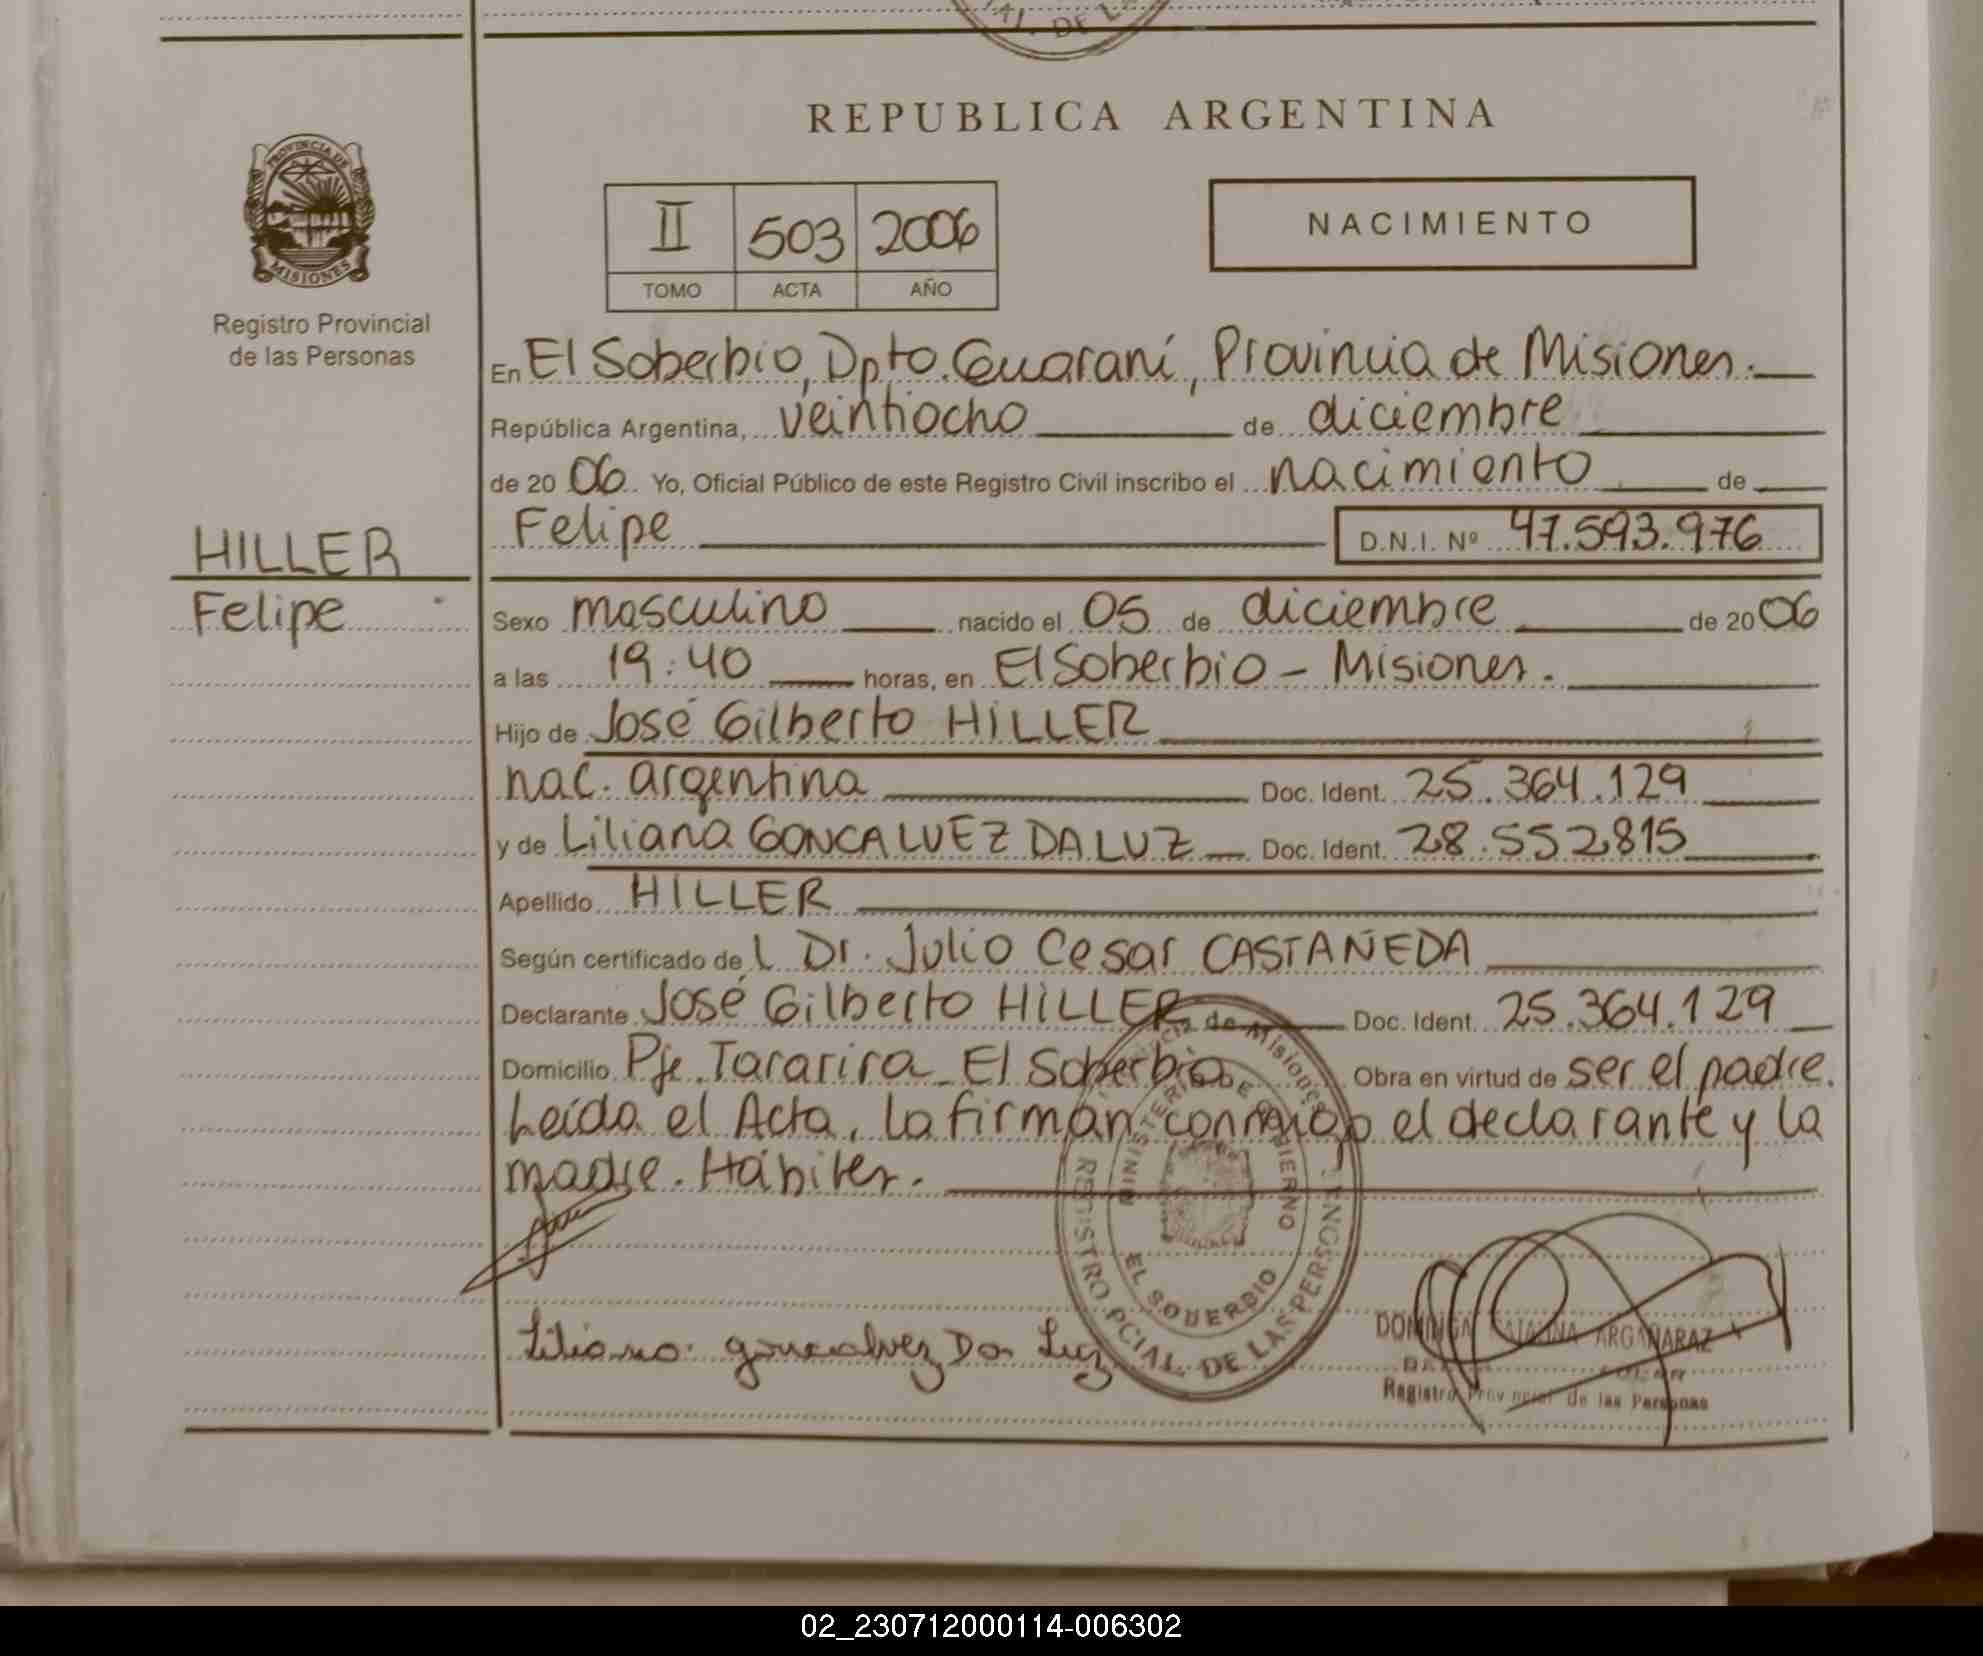 REPUBLICA ARGENTINA
PROVINCIA DE
MISIONES
Registro Provincial
de las Personas
II 503 2006
TOMO ACTA AÑO
NACIMIENTO
En El Soberbio, Dpto. Guaraní, Provincia de Misiones.
República Argentina, veintiocho de diciembre
de 20 06 Yo, Oficial Público de este Registro Civil inscribo el nacimiento de
Felipe D.N.I. Nº 47.593.976
HILLER
Felipe
Sexo masculino nacido el 05 de diciembre de 20 06
a las 19:40 horas, en El Soberbio - Misiones.
Hijo de José Gilberto HILLER
nac. argentina Doc. Ident. 25.364.129
y de Liliana GONCALVEZ DA LUZ Doc. Ident. 28.552815
Apellido HILLER
Según certificado de l Dr. Julio Cesar CASTAÑEDA
Declarante José Gilberto HILLER Doc. Ident. 25.364.129
Domicilio Pje. Tararira - El Soberbio Obra en virtud de ser el padre.
Leída el Acta, la firman conmigo el declarante y la
madre. Hábiles.
Provincia de Misiones
MINISTERIO DE GOBIERNO
EL SOBERBIO
REGISTRO PCIAL. DE LAS PERSONAS
Liliana goncalvez Da Luz
DOMINGA CATALINA ARGAÑARAZ
Registro Provincial de las Personas
02_230712000114-006302